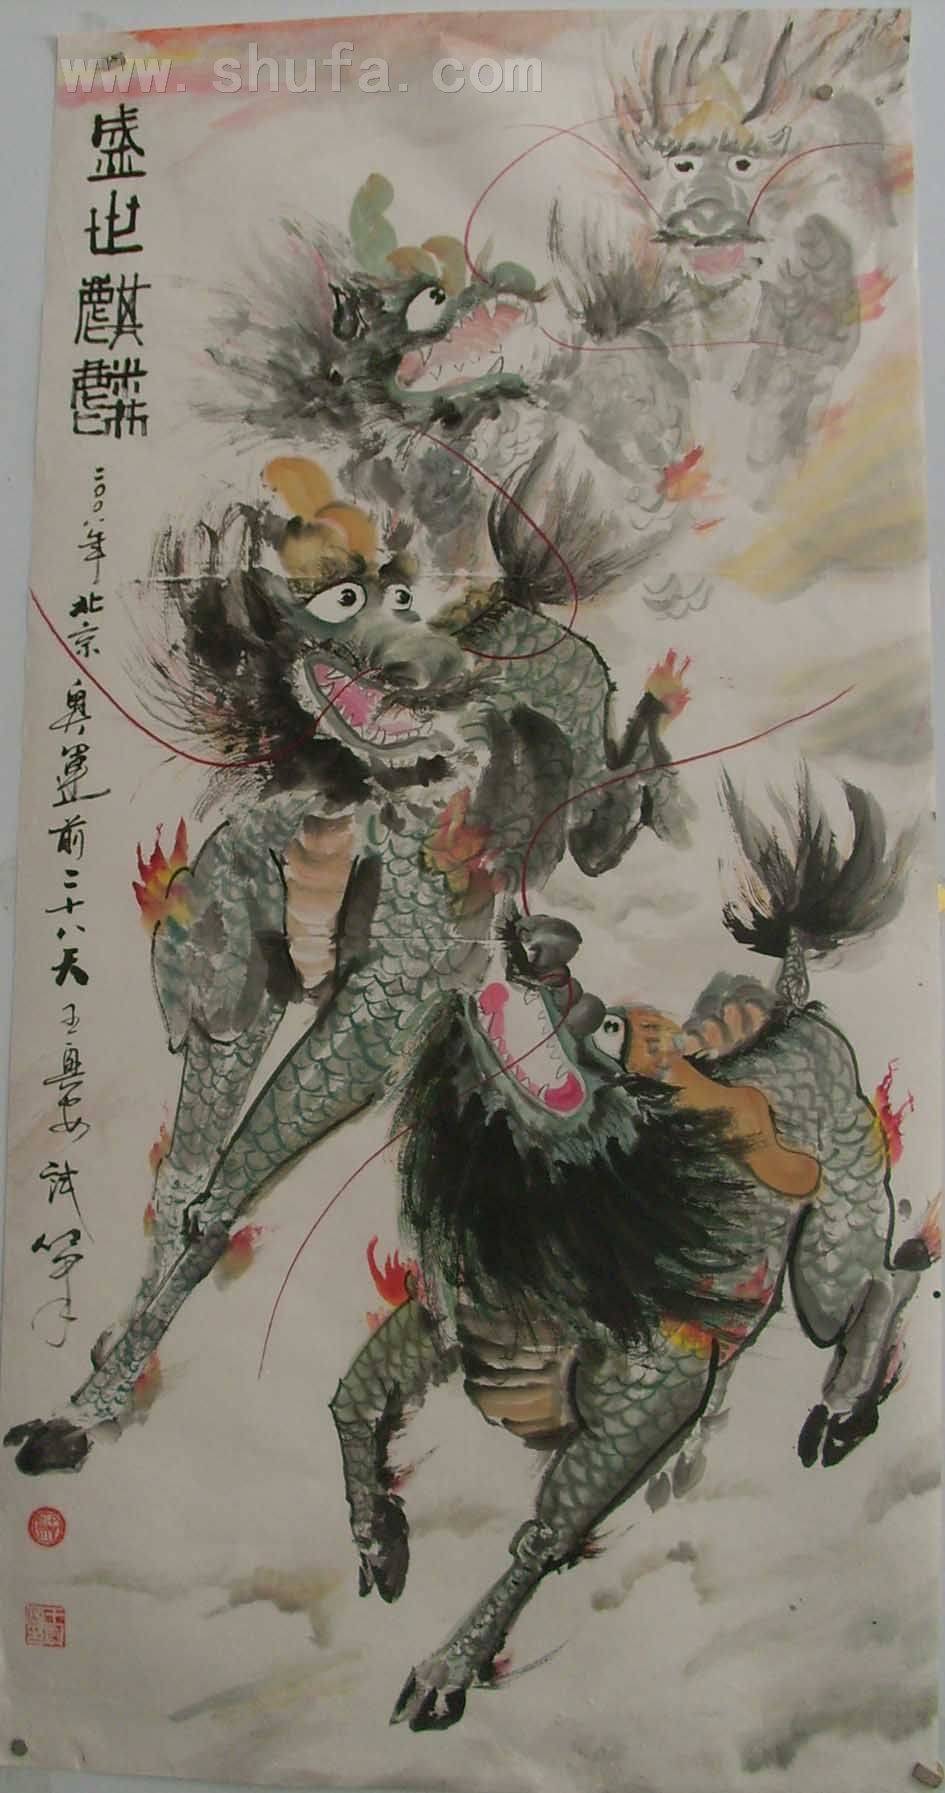 www.shufa.com
盛世麒麟
二〇〇八年北京奥运前二十八天王兴安试笔